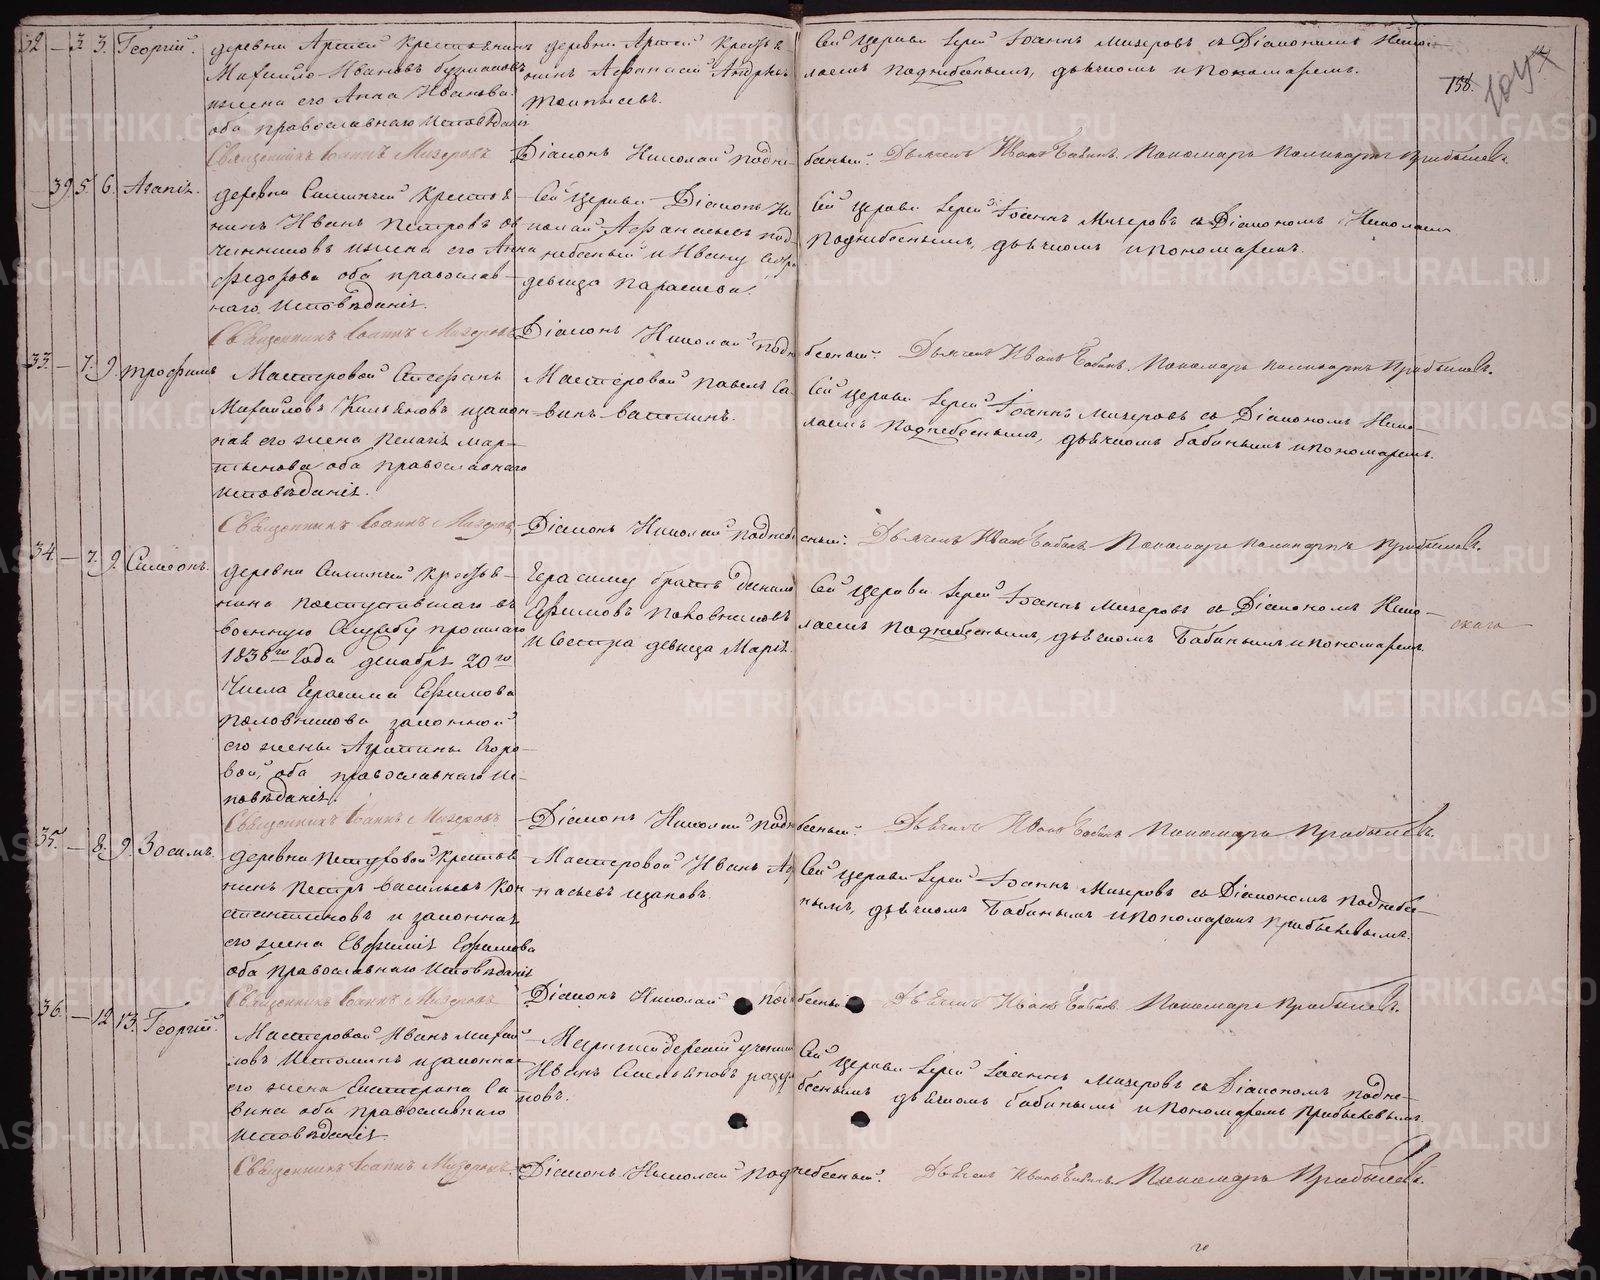 32 — 3 3. Георгій.
деревни Артей Крестьянинъ
Михайло Ивановъ
жена его Анна Иванова
оба православнаго исповѣданія
деревни Артей Кресть
нинъ Афанасій Андрѣевъ
Сей церкви Іерей Іоаннъ Мизеровъ съ Діакономъ Нико
лаемъ Поднебеснымъ, дьячкомъ и пономаремъ.
158.
Священникъ Іоаннъ Мизеровъ Діаконъ Николай Подне-бесный. Дьячекъ Иванъ Бабинъ. Пономарь Поликарпъ Прибылевъ
39 5 6. Агапія.
деревни Крестья
нинъ Иванъ Петровъ Ов
чинниковъ и жена его Анна
Федорова оба православ—
наго исповѣданія.
Сей церкви Діаконъ Ни
колай Афанасьевъ под—
небесный и Ивану
девица Парасковья.
Сей церкви Іерей Іоаннъ Мизеровъ съ Діакономъ Николаемъ
Поднебеснымъ, дьячкомъ и пономаремъ.
Священникъ Іоаннъ Мизеровъ Діаконъ Николай Подне-бесный. Дьячекъ Иванъ Бабинъ. Пономарь Поликарпъ Прибылевъ.
33. — 7. 9. Трофимъ
Мастеровой Стефанъ
Михайловъ Кильяновъ и закон
ная его жена Пелагія Мар—
тьянова оба православнаго
исповѣданія.
Мастеровой Павелъ Са—
винъ Ватолинъ.
Сей церкви Іерей Іоаннъ Мизеровъ съ Діакономъ Нико—
лаемъ Поднебеснымъ, дьячкомъ Бабинымъ и пономаремъ.
Священникъ Іоаннъ Мизеровъ Діаконъ Николай Поднебесный. Дьячекъ Иванъ Бабинъ. Пономарь Поликарпъ Прибылевъ.
34. — 7. 9. Симеонъ.
деревни Крестья—
нина поступившаго въ
военную службу прошлаго
1838го года декабря 20го
числа Герасима Ефимова
Половникова законной
его жены Агрипины Егоро—
вой, оба православнаго ис—
повѣданія.
Герасиму братъ Данило
Ефимовъ Половниковъ
и сестра девица Марія.
Сей церкви Іерей Іоаннъ Мизеровъ съ Діакономъ Нико—
лаемъ Поднебеснымъ, дьячкомъ Бабинымъ и пономаремъ.
скаго
Священникъ Іоаннъ Мизеровъ Діаконъ Николай Поднебесный. Дьячекъ Иванъ Бабинъ Пономарь Прибылевъ.
35. — 8. 9. Зосимъ.
деревни Петуховой крестья
нинъ Петръ Васильевъ Кон
стантиновъ и законная
его жена Евфимія Ефимова
оба православнаго исповѣданія
Мастеровой Иванъ Аѳ
насьевъ
Сей церкви Іерей Іоаннъ Мизеровъ съ Діакономъ Поднебес—
нымъ, дьячкомъ Бабинымъ и пономаремъ Прибылевымъ.
Священникъ Іоаннъ Мизеровъ Діаконъ Николай Поднебесный Дьячекъ Иванъ Бабинъ. Пономарь Прибылевъ.
36. — 12 13. Георгій.
Мастеровой Иванъ Михай
ловъ Истоминъ и законная
его жена Екатерина Са—
вина оба православнаго
исповѣданія
ученикъ
Иванъ
новъ.
Сей церкви Іерей Іоаннъ Мизеровъ съ Діакономъ Подне—
беснымъ дьячкомъ Бабинымъ и пономаремъ Прибылевымъ.
Священникъ Іоаннъ Мизеровъ. Діаконъ Николай Поднебесный. Дьячекъ Иванъ Бабинъ. Пономарь Прибылевъ.
METRIKI.GASO-URAL.RU